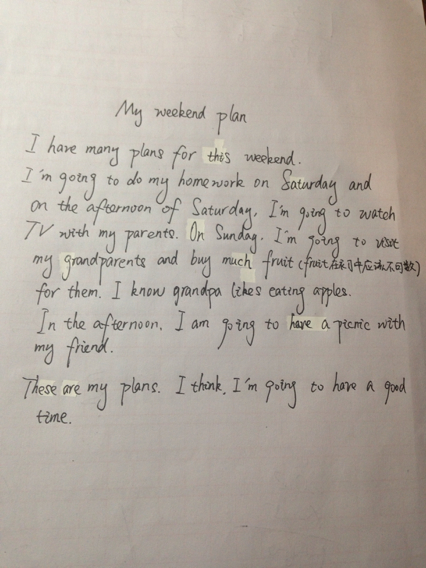 My weekend plan
I have many plans for this weekend.
I'm going to do my homework on Saturday and
on the afternoon of Saturday, I'm going to watch
TV with my parents. On Sunday, I'm going to visit
my grandparents and buy much fruit (fruit在本句中应该是不可数)
for them. I know grandpa likes eating apples.
In the afternoon, I am going to have a picnic with
my friend.
These are my plans. I think, I'm going to have a good
time.